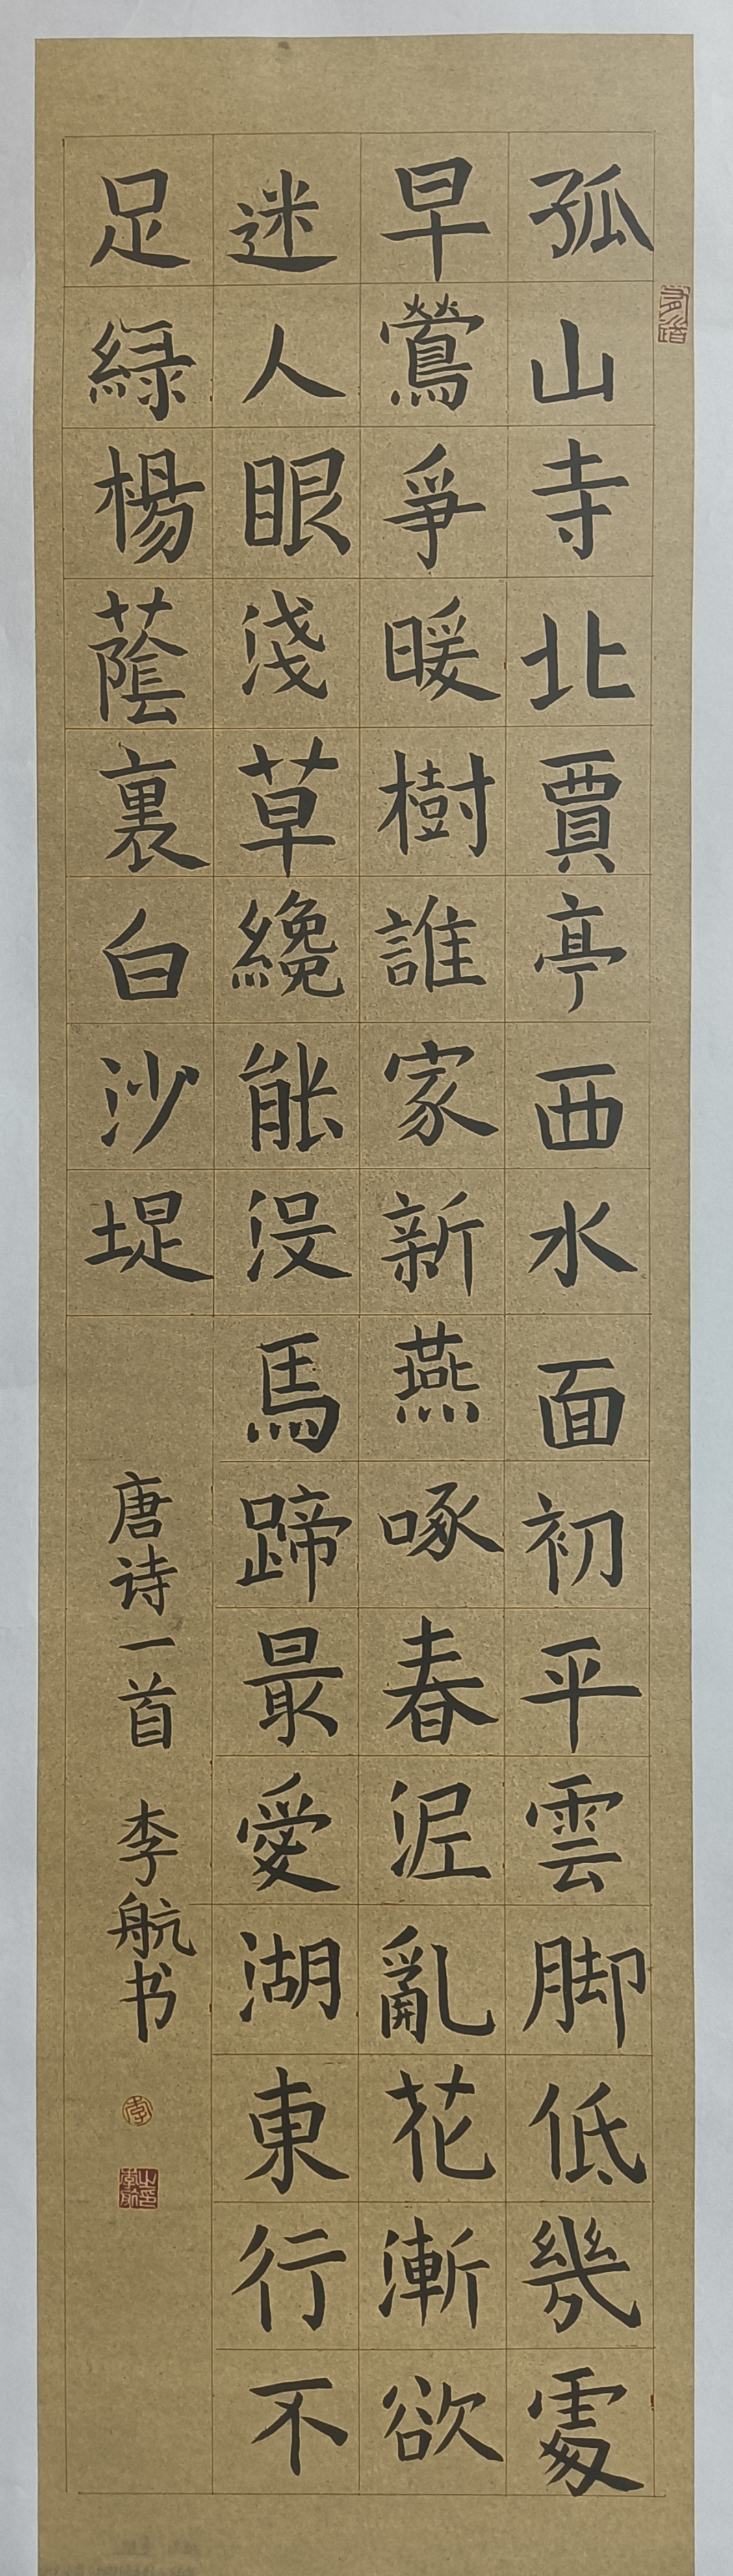 孤山寺北賈亭西水面初平雲脚低幾處
早鶯爭暖樹誰家新燕啄春泥亂花漸欲
迷人眼淺草纔能沒馬蹄最愛湖東行不
足綠楊蔭裏白沙堤
唐诗一首 李航书
李
李航之印